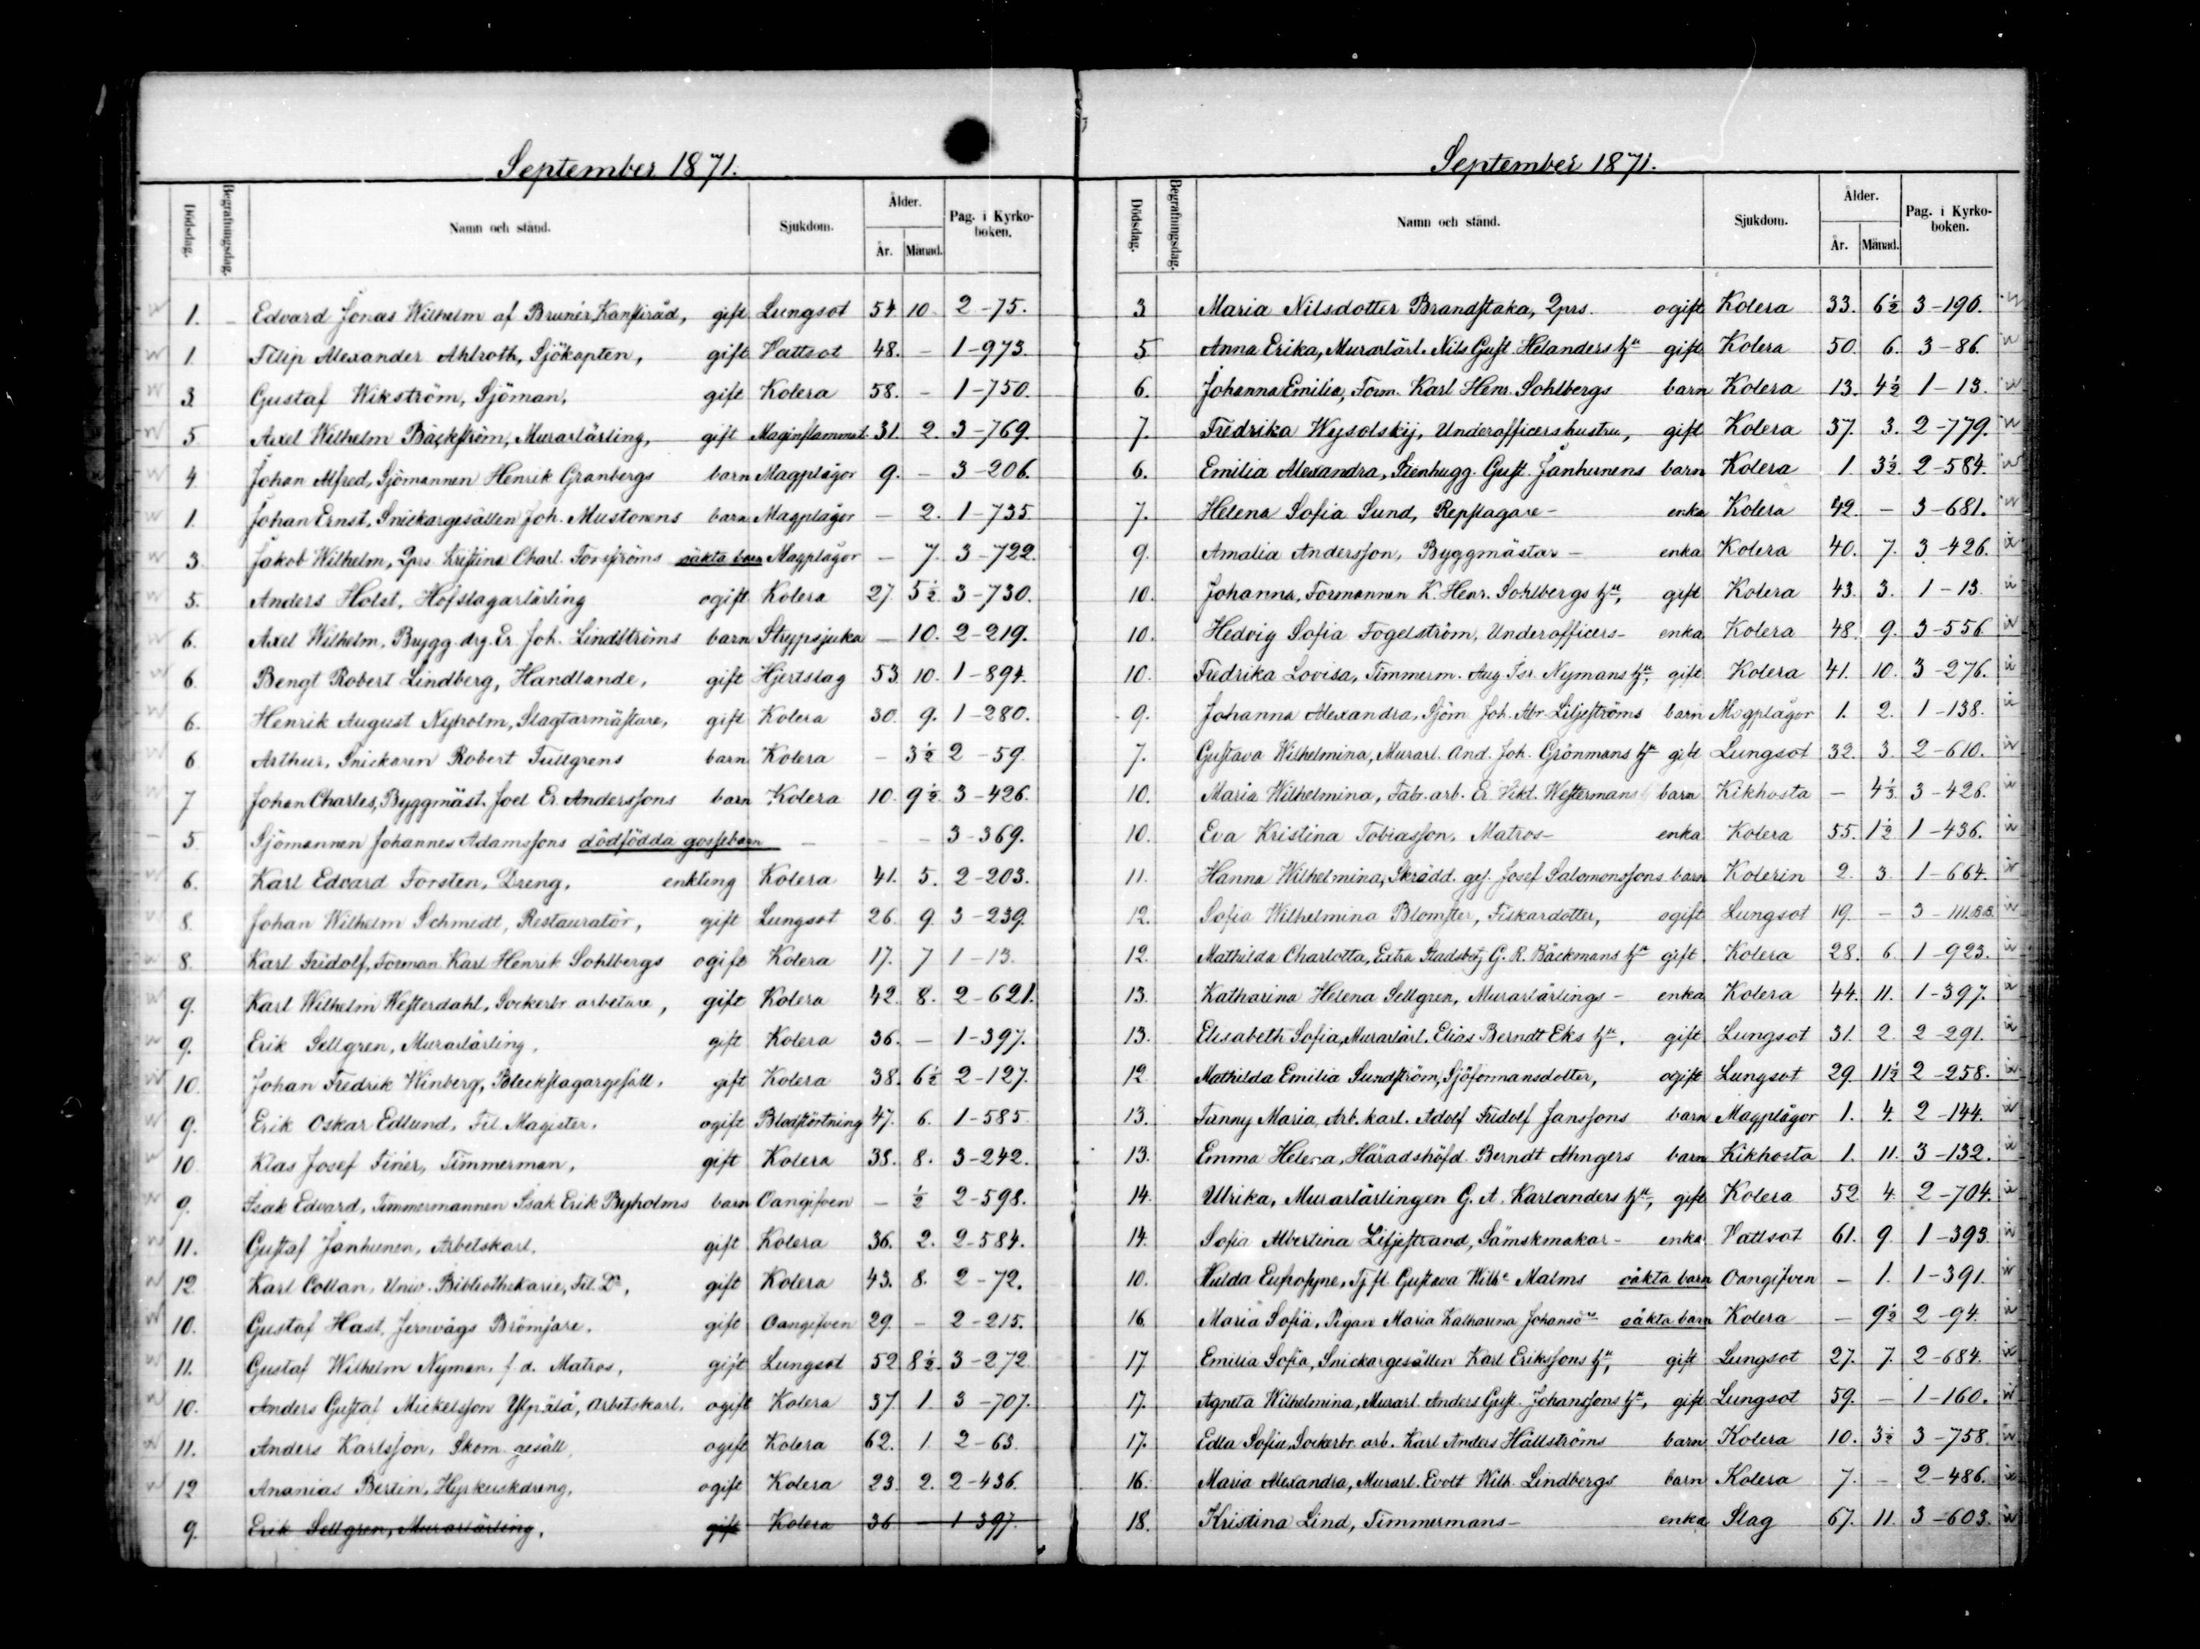 September 1871.
Dödsdag. Begrafningsdag. Namn och stånd. Sjukdom. Ålder. År. Månad. Pag. i Kyrkoboken.
1. Edvard Jonas Wilhelm af Brunér, Kansliråd, gift Lungsot 54 10. 2-75.
1. Filip Alexander Ahlroth, Sjökapten, gift Vattsot 48. - 1-973.
3. Gustaf Wikström, Sjöman, gift Kolera 58. - 1-750.
5. Axel Wilhelm Bäckström, Murarlärling, gift Maginflammat. 31. 2. 3-769.
4. Johan Alfred, Sjömannen Henrik Granbergs barn Magplågor 9. - 3-206.
1. Johan Ernst, Snickargesällen Joh. Mustonens barn Magplågor - 2. 1-735
3. Jakob Wilhelm, Qprs. Kristina Charl. Forsströms oäkta barn Magplågor - 7. 3-722.
5. Anders Holst, Hofslagarlärling ogift Kolera 27. 5 1/2. 3-730.
6. Axel Wilhelm, Brygg. drg. Er. Joh. Lindströms barn Strypsjuka - 10. 2-219.
6. Bengt Robert Lindberg, Handlande, gift Hjertslag 53 10. 1-894.
6. Henrik August Nyholm, Slagtarmästare, gift Kolera 30. 9. 1-280.
6 Arthur, Snickaren Robert Tullgrens barn Kolera - 3 1/2 2-59.
7 Johan Charles, Byggmäst. Joel Er. Anderssons barn Kolera 10. 9 1/2. 3-426.
5. Sjömannen Johannes Adamssons dödfödda gossebarn - - - 3-369.
6. Karl Edvard Forsten, Dreng, enkling Kolera 41. 5. 2-203.
8. Johan Wilhelm Schmidt, Restauratör, gift Lungsot 26. 9. 3-239.
8. Karl Fridolf, Forman Karl Henrik Sohlbergs ogift Kolera 17. 7 1-13.
9. Karl Wilhelm Westerdahl, Sockerbr. arbetare, gift Kolera 42. 8. 2-621.
9. Erik Sellgren, Murarlärling, gift Kolera 36. - 1-397.
10. Johan Fredrik Winberg, Bleckslagargesäll, gift Kolera 38. 6 1/2 2-127.
9. Erik Oskar Edlund, Fil. Magister, ogift Blodstörtning 47. 6. 1-585.
10. Klas Josef Finér, Timmerman, gift Kolera 38. 8. 3-242.
9. Isak Edvard, Timmermannen Isak Erik Byholms barn Oangifven - 1/2 2-598.
11. Gustaf Janhunen, Arbetskarl, gift Kolera 36. 2. 2-584.
12. Karl Collan, Univ. Bibliothekarie, Fil. Dr, gift Kolera 43. 8. 2-72.
10. Gustaf Hast, Jernvägs Brömsare, gift Oangifven 29. - 2-215.
11. Gustaf Wilhelm Nyman, f.d. Matros, gift Lungsot 52 8 1/2. 3-272
10. Anders Gustaf Mickelsson Yspälä, Arbetskarl, ogift Kolera 37. 1. 3-707.
11. Anders Karlsson, Skom. gesäll, ogift Kolera 62. 1. 2-63.
12 Ananias Bertin, Hyrkuskdreng, ogift Kolera 23. 2. 2-436.
9. Erik Sellgren, Murarlärling, gift Kolera 36 - 1-397.
September 1871.
Dödsdag. Begrafningsdag. Namn och stånd. Sjukdom. Ålder. År. Månad. Pag. i Kyrkoboken.
3 Maria Nilsdotter Brandstaka, Qprs. ogift Kolera 33. 6 1/2 3-190.
5 Anna Erika, Murarlärl. Nils Gust. Helanders hu gift Kolera 50. 6. 3-86.
6. Johanna Emilia, Form. Karl Henr. Sohlbergs barn Kolera 13. 4 1/2 1-13.
7. Fredrika Wysotskij, Underofficershustru, gift Kolera 37. 3. 2-779.
6. Emilia Alexandra, Stenhugg. Gust. Janhunens barn Kolera 1. 3 1/2 2-584.
7. Helena Sofia Sund, Repslagare- enka Kolera 42. - 3-681.
9. Amalia Andersson, Byggmästar- enka Kolera 40. 7. 3-426.
10. Johanna, Formannen K. Henr. Sohlbergs hu, gift Kolera 43. 3. 1-13.
10. Hedvig Sofia Fogelström, Underofficers- enka Kolera 48. 9. 3-556
10. Fredrika Lovisa, Timmerm. Aug. Isr. Nymans hu, gift Kolera 41. 10. 3-276.
9. Johanna Alexandra, Sjöm. Joh. Abr. Liljeströms barn Magplågor 1. 2. 1-138.
7. Gustava Wilhelmina, Murarl. And. Joh. Grönmans hu gift Lungsot 32. 3. 2-610.
10. Maria Wilhelmina, Fabr. arb. Er. Vikt. Westermans barn Kikhosta - 4 1/3 3-426.
10. Eva Kristina Tobiasson, Matros- enka Kolera 55. 1 1/2 1-436.
11. Hanna Wilhelmina, Skrädd. ges. Josef Salomonssons barn Kolerin 2. 3. 1-664.
12. Sofia Wilhelmina Blomster, Fiskardotter, ogift Lungsot 19. - 3-111.BB.
12. Mathilda Charlotta, Extra Stadsbetj. G. R. Bäckmans hu gift Kolera 28. 6. 1-923.
13. Katharina Helena Sellgren, Murarlärlings- enka Kolera 44. 11. 1-397.
13. Elisabeth Sofia, Murarlärl. Elias Berndt Eks hu, gift Lungsot 31. 2. 2-291.
12. Mathilda Emilia Sundström, Sjöformansdotter, ogift Lungsot 29. 11 1/2 2-258.
13. Fanny Maria, Arb. karl. Adolf Fridolf Janssons barn Magplågor 1. 4. 2-144.
13. Emma Helena, Häradshöfd. Berndt Ahngers barn Kikhosta 1. 11. 3-132.
14. Ulrika, Murarlärlingen G. A. Karlanders hu, gift Kolera 52 4. 2-704.
14. Sofia Albertina Liljestrand, Sämskmakar- enka Vattsot 61. 9. 1-393.
10. Hulda Eufrosyne, Tj. fl. Gustava Wilh. Malms oäkta barn Oangifven - 1. 1-391
16. Maria Sofia, Pigan Maria Katharina Johanss oäkta barn Kolera - 9 1/2 2-94.
17. Emilia Sofia, Snickargesällen Karl Erikssons hu, gift Lungsot 27. 7. 2-684.
17. Agneta Wilhelmina, Murarl. Anders Gust. Johanssons hu, gift Lungsot 59. - 1-160.
17. Edla Sofia, Sockerbr. arb. Karl Anders Hällströms barn Kolera 10. 3 1/2 3-758.
16. Maria Alexandra, Murarl. Evolt Wilh. Lindbergs barn Kolera 7. - 2-486.
18. Kristina Lind, Timmermans- enka Slag 67. 11. 3-603.